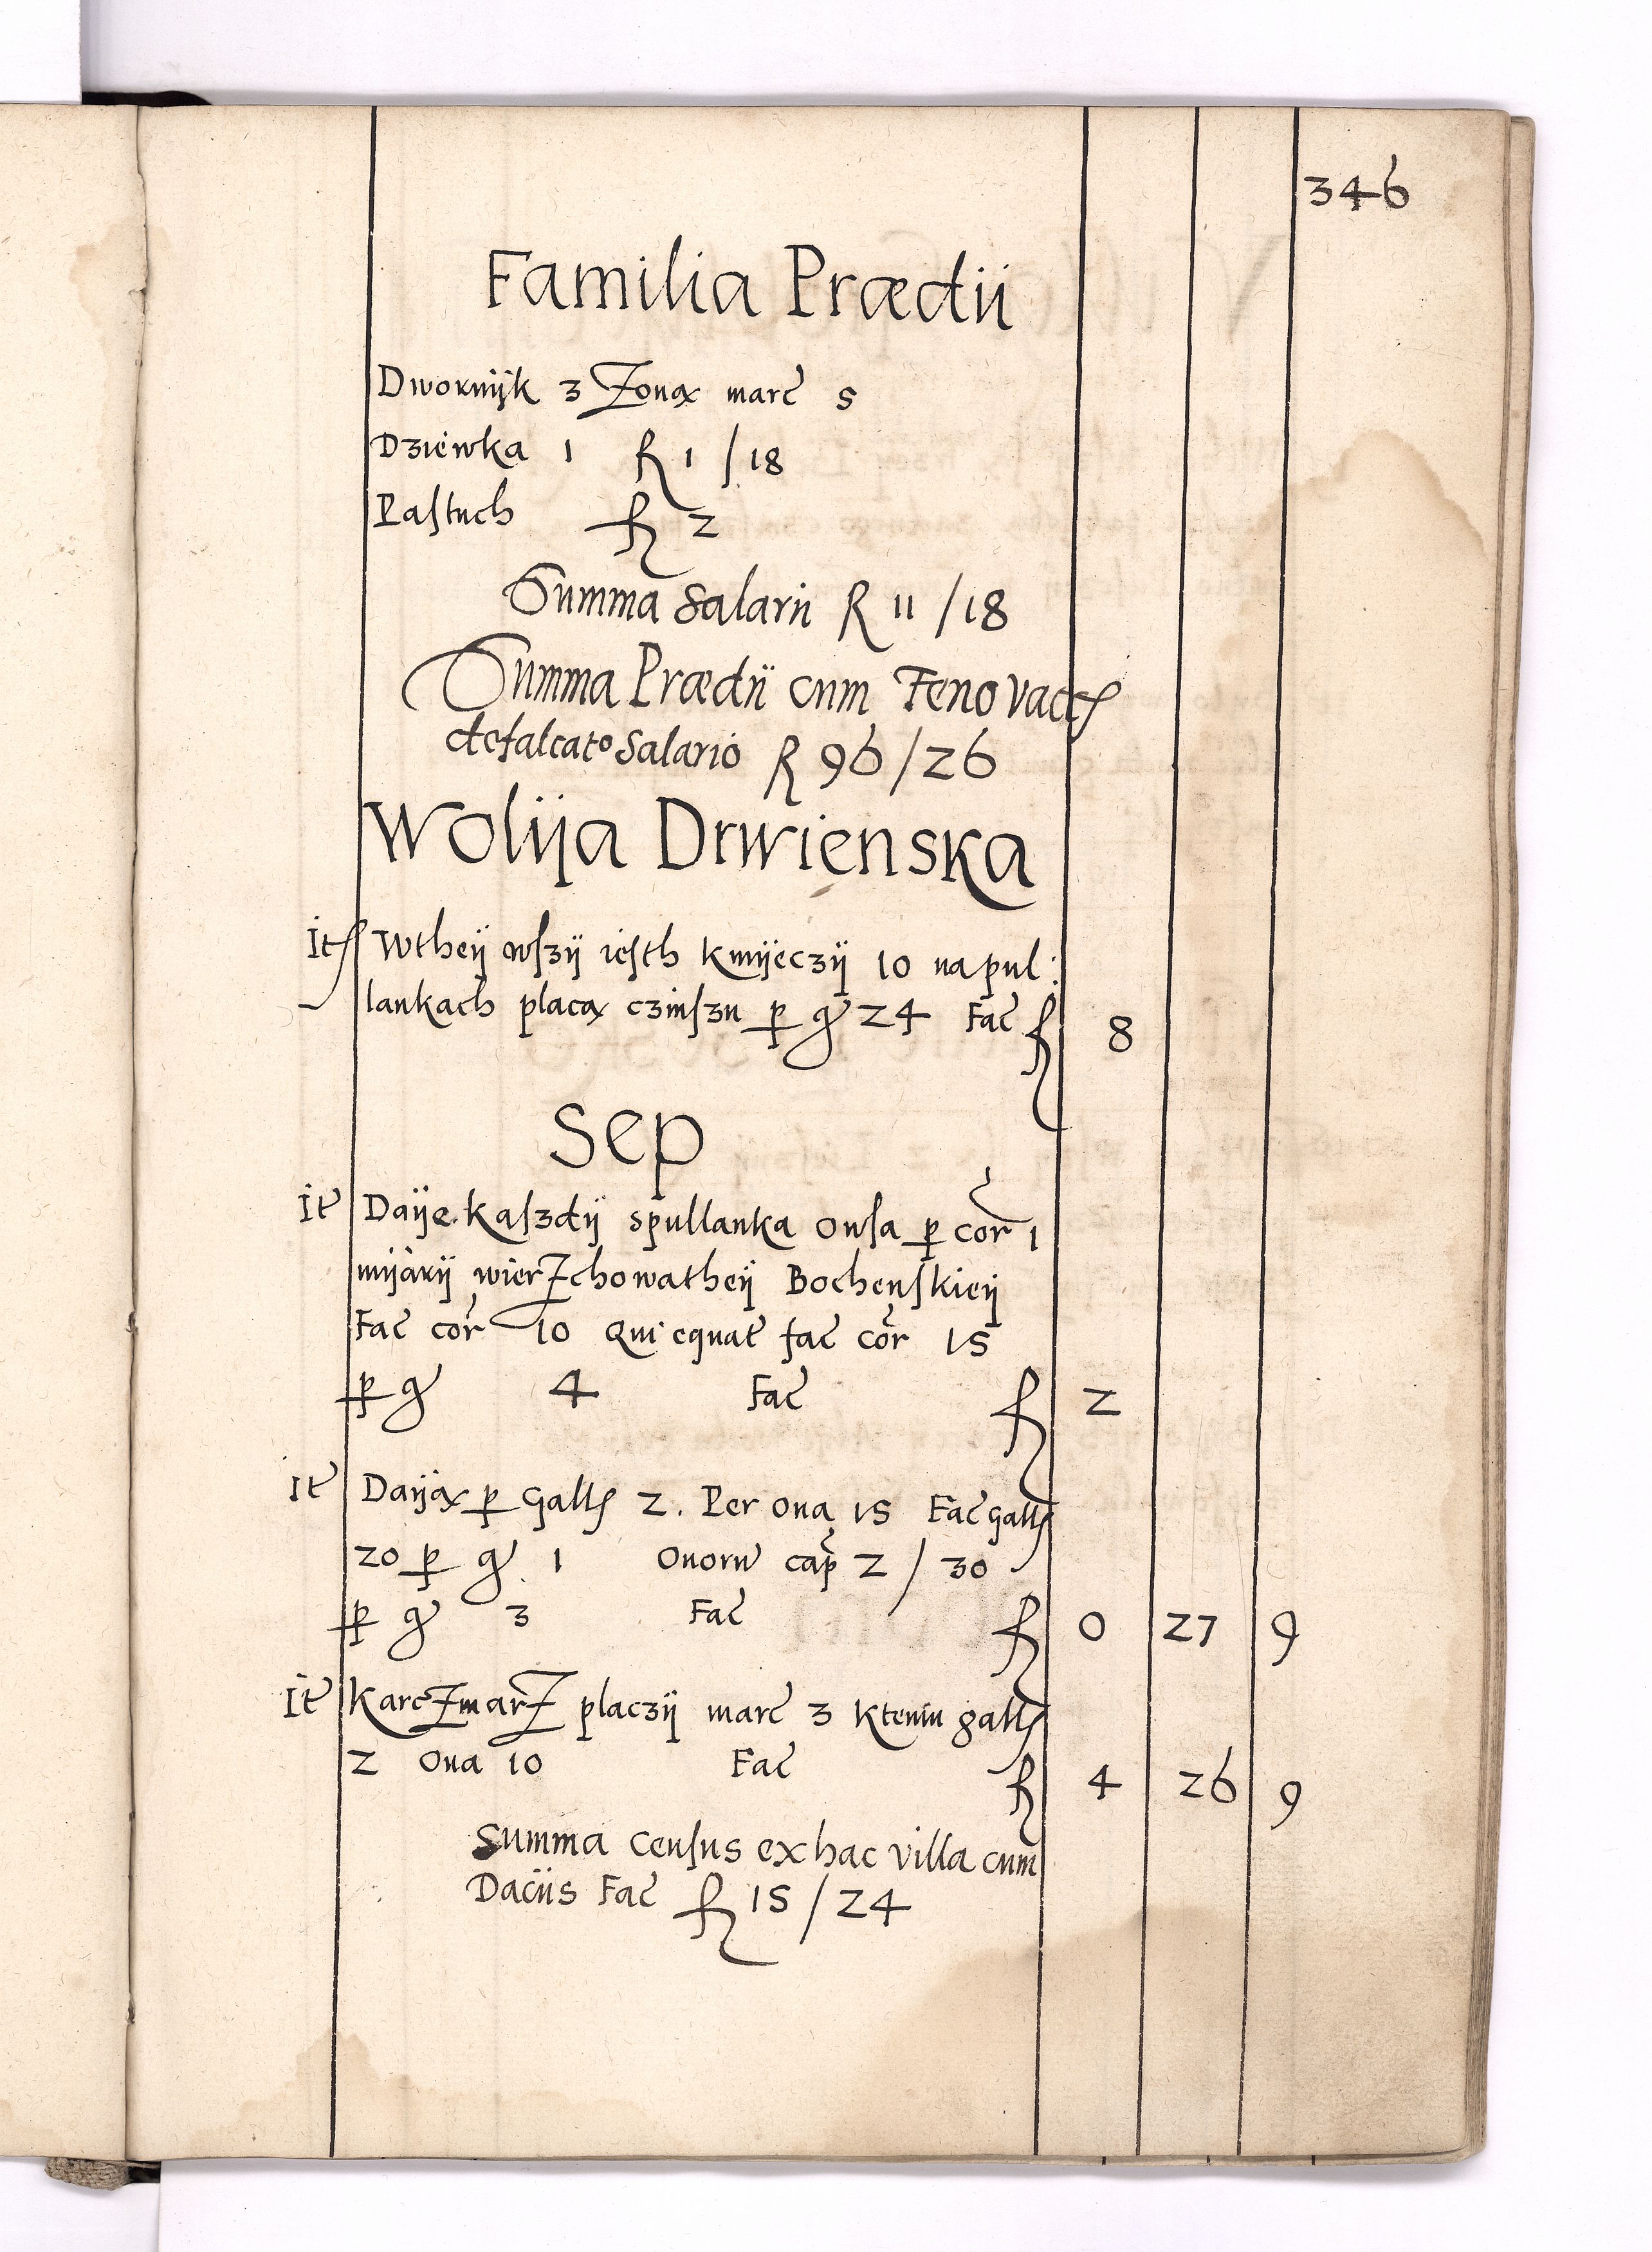 346
Familia Prædii
Dwornijk 3 Zoną marc 5
Dziewka 1 fl 1 / 18
Pastuch fl 2
Summa Salarii fl 11 / 18
Summa Prædii cum Feno vacc
defalcato Salario fl 96 / 26
Wolija Drwienska
It Wtheij wszij iesth kmijeczij 10 na pul:
lankach placą czinszu p gr 24 Fac fl 8
Sep
It Daije kaszdij spullanka owsa p cor 1
mijarij wierzchowatheij Bochenskieij
Fac cor 10 Qui equat fac cor 15
p gr 4 Fac fl 2
It Daiją p Gall 2. Per ona 15 Fac gall
20 p gr 1 Ovorum cap 2 / 30
p gr 3 Fac fl 0 27 9
It Karczmarz placzij marc 3 ktemu gall
2 Ona 10 Fac fl 4 26 9
Summa Census ex hac villa cum
Daciis Fac fl 15 / 24